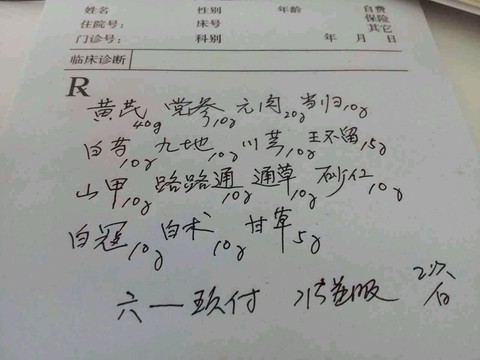 姓名 性别 年龄 自费
保险
住院号: 床号 其它
门诊号: 科别 年 月 日
临床诊断
R
黄芪40g 党参10g 元肉20g 当归10g
白芍10g 九地10g 川芎10g 王不留15g
山甲10g 路路通10g 通草10g 砂仁10g
白寇10g 白术10g 甘草5g
六一 付 水 服 2次